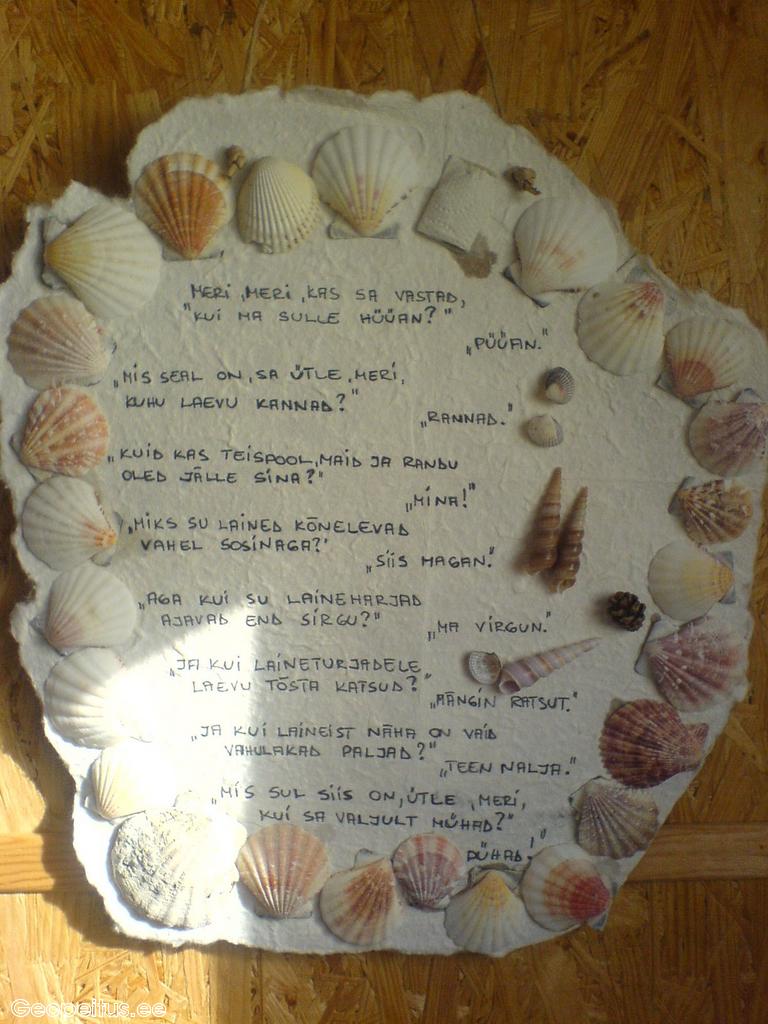 MERI, MERI, KAS SA VASTAD,
"KUI MA SULLE HÜÜAN?"
„PÜÜAN."
„MIS SEAL ON, SA ÜTLE, MERI,
KUHU LAEVU KANNAD?"
„RANNAD."
„KUID KAS TEISPOOL, MAID JA RANDU
OLED JÄLLE SINA?"
„MINA!"
„MIKS SU LAINED KÕNELEVAD
VAHEL SOSINAGA?"
„SIIS MAGAN."
„AGA KUI SU LAINEHARJAD
AJAVAD END SIRGU?"
„MA VIRGUN."
„JA KUI LAINETURJADELE
LAEVU TÕSTA KATSUD?"
„MÄNGIN RATSUT."
„JA KUI LAINEIST NÄHA ON VAID
VAHULAKAD PALJAD?"
„TEEN NALJA."
„MIS SUL SIIS ON, ÜTLE, MERI,
KUI SA VALJULT MÜHAD?"
PÜHAD!"
Geopeitus.ee